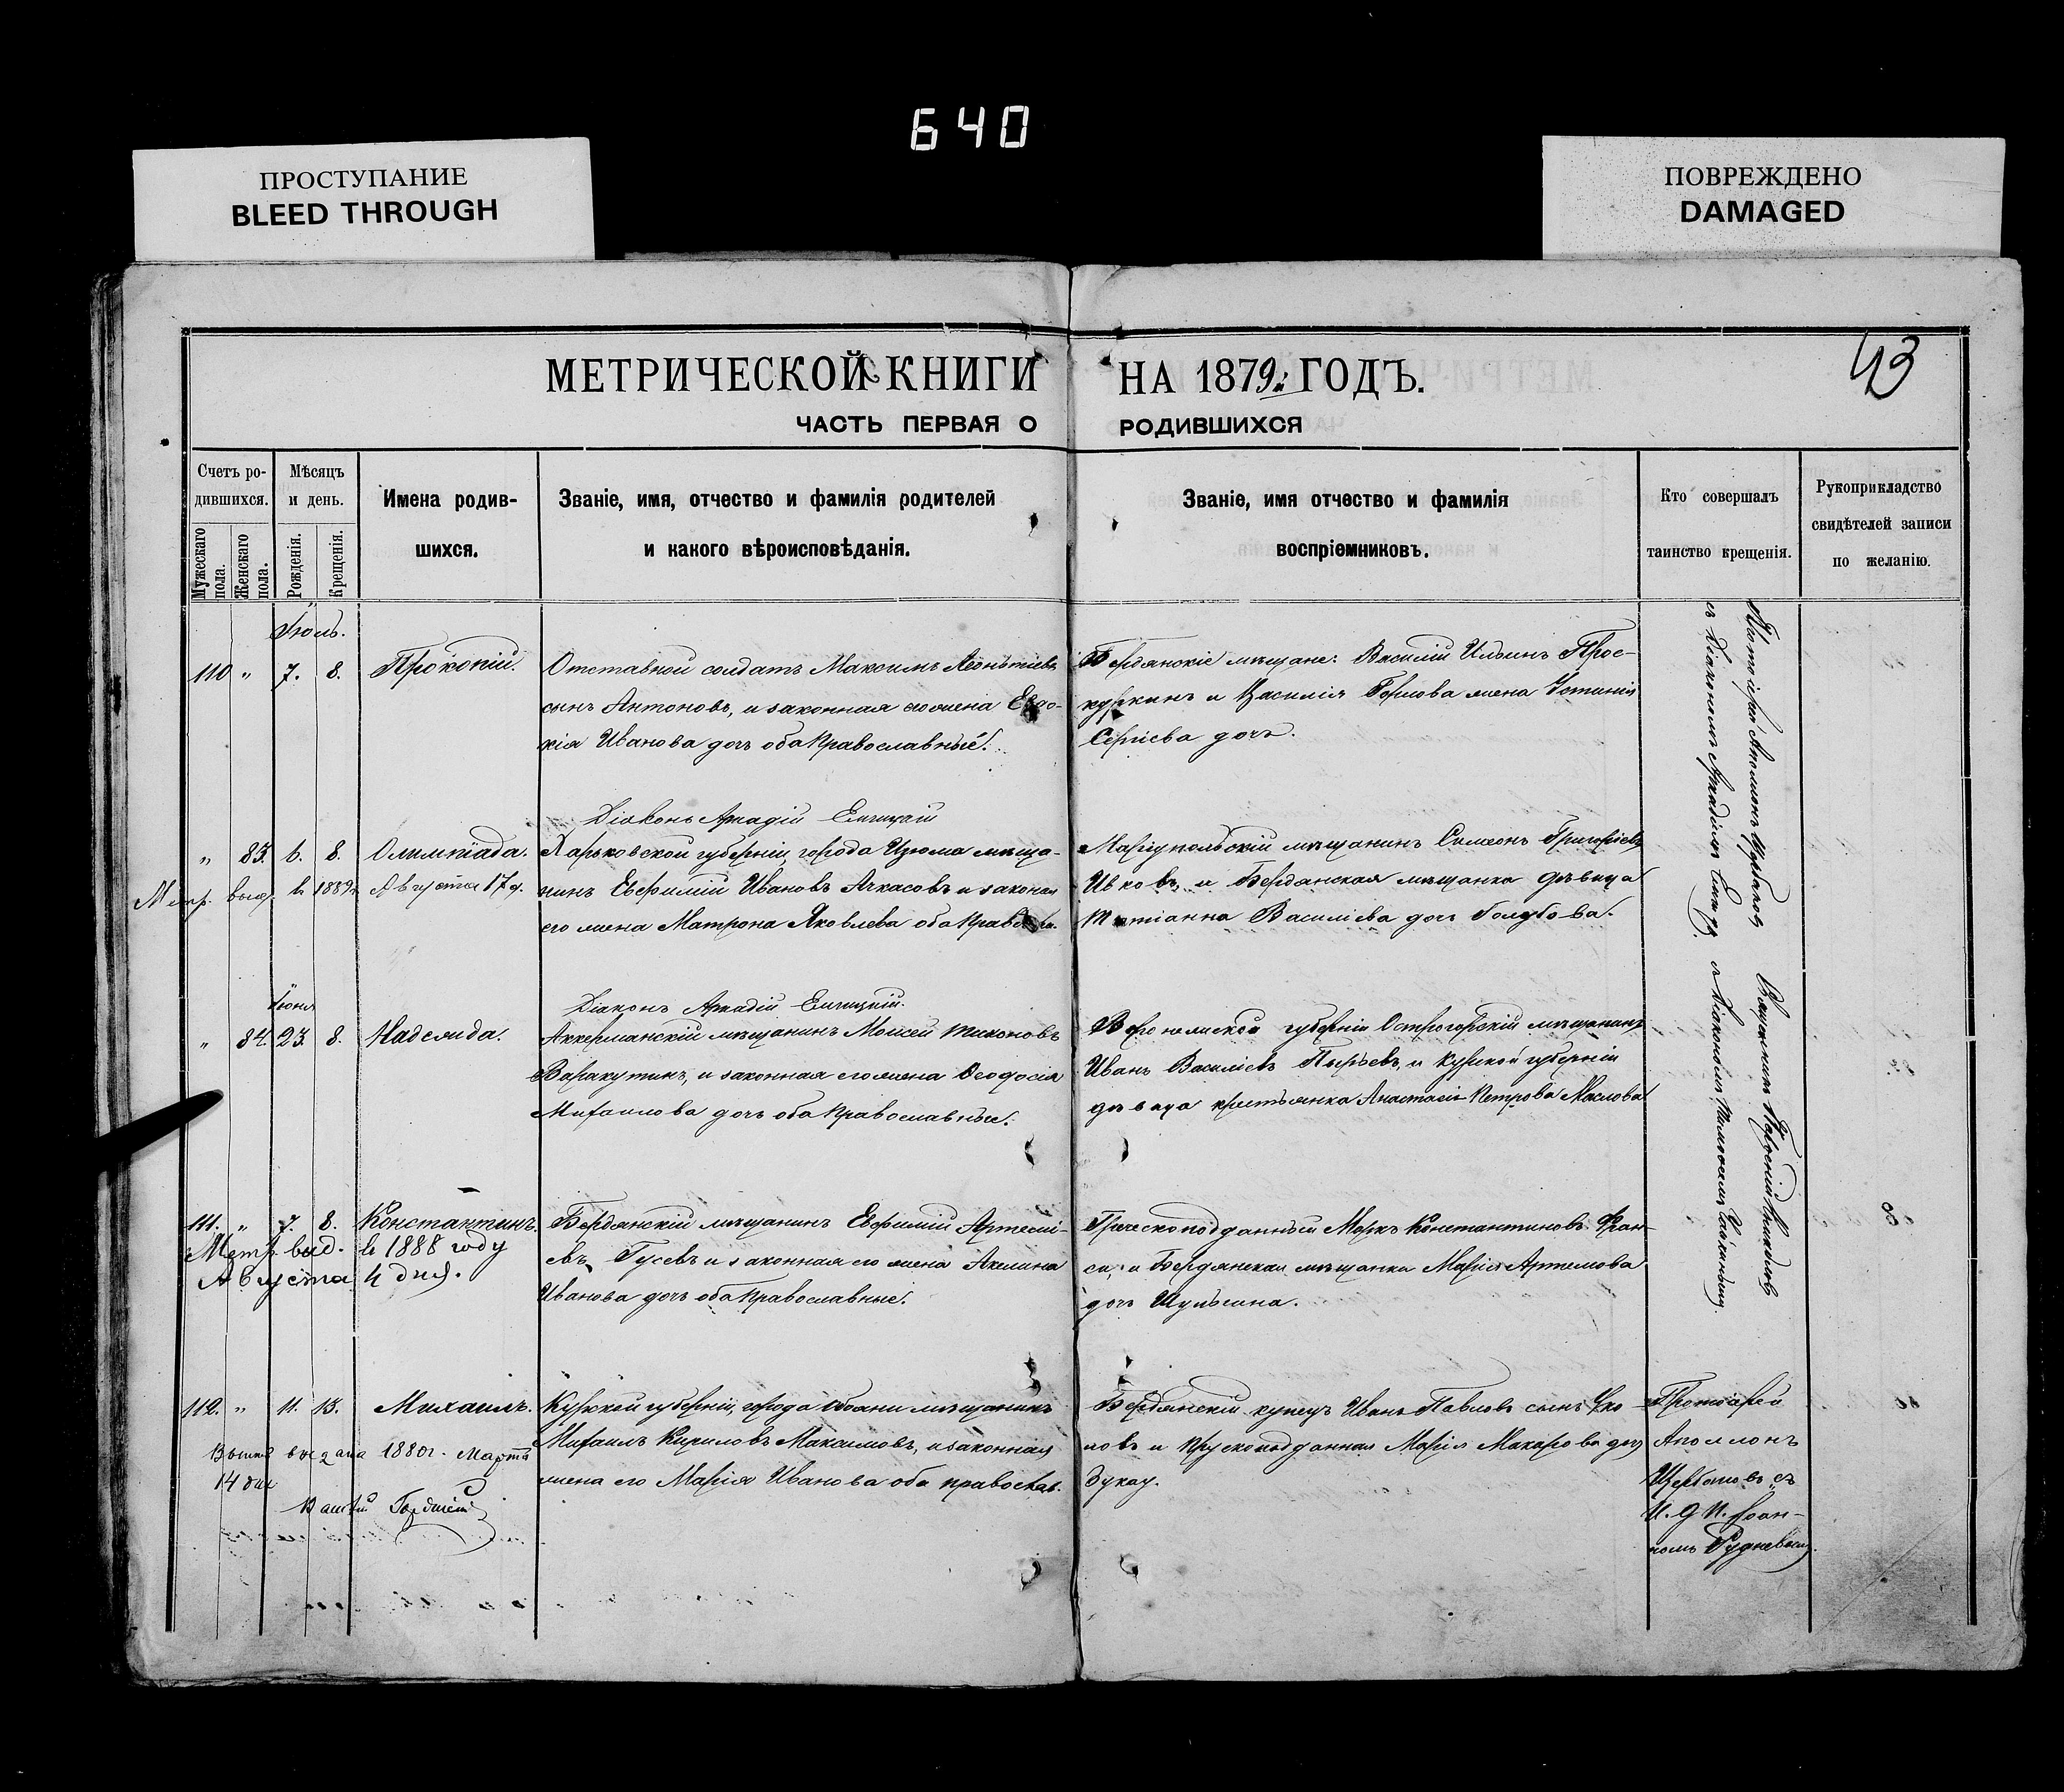 640
ПРОСТУПАНИЕ
BLEED THROUGH
ПОВРЕЖДЕНО
DAMAGED
МЕТРИЧЕСКОЙ КНИГИ НА 1879й ГОДЪ.
43
ЧАСТЬ ПЕРВАЯ О РОДИВШИХСЯ
Счетъ ро-
дившихся.
Мужескаго пола.
Женскаго пола.
Мѣсяцъ
и день.
Рожденія.
Крещенія.
Имена родив-
шихся.
Званіе, имя, отчество и фамилія родителей
и какого вѣроисповѣданія.
Званіе, имя отчество и фамилія
воспріемниковъ.
Кто совершалъ
таинство крещенія.
Рукоприкладство
свидѣтелей записи
по желанію.
Іюль.
110 " 7. 8. Прокопій.
Отставной солдатъ Максимъ Леонтіевъ
сынъ Антоновъ, и законная его жена Евдо-
кія Иванова дочь оба Православные.
Бердянскіе мѣщане: Василій Ильинъ Прос-
куркинъ и Василія жена Устинія
Сергіева дочь.
Діаконъ Аркадій
" 83. 6. 8. Олимпіада.
Метр. выд. в 1889 г. Августа 17 д.
Харьковской губерніи, города Изюма мѣща-
нинъ Евфимій Ивановъ Ачкасовъ и законая
его жена Матрона Яковлева оба
Маріупольскій мѣщанинъ Симеонъ Григорьевъ
Ивковъ, и Бердянская мѣщанка дѣвица
Татіанна Василіева дочь Голубова.
Протоіерей Аполлонъ Щербаковъ
съ Діакономъ Аркадіемъ
Іюня
Діаконъ Аркадій
" 84. 23. 8. Надежда.
Аккерманскій мѣщанинъ Моисей Тихоновъ
Варакутинъ, и законная его жена Ѳеодосія
Михаилова дочь оба Православные.
Воронежской губерніи Острогорскій мѣщанинъ
Иванъ Василіевъ Пырьевъ, и Курской губерніи
дѣвица крестьянка Анастасія Петрова Маслова
Священникъ
съ Діакономъ
111. " 7. 8. Константинъ.
Метр. выд. в 1888 году
Августа 4 дня.
Бердянскій мѣщанинъ Евфимій Артемі-
евъ Гусевъ и законная его жена Акелина
Иванова дочь оба Православные.
Греческоподданный Маркъ Константиновъ Фран-
си, и Бердянская мѣщанка Марія Артемова
дочь Шульгина.
112. " 11. 13. Михаилъ.
выдана 1880 г. Марта
14 дня
Курской губерніи, города Обояни мѣщанинъ
Михаилъ Кириловъ Максимовъ, и законная
жена его Марія Иванова оба православ.
Бердянскій купецъ Иванъ Павловъ сынъ
новъ и Прускоподданная Марія Макарова дочь
Зукау.
Протоіерей
Аполлонъ
Щербаковъ съ
И. д. п. Іоан-
номъ Рудневымъ.